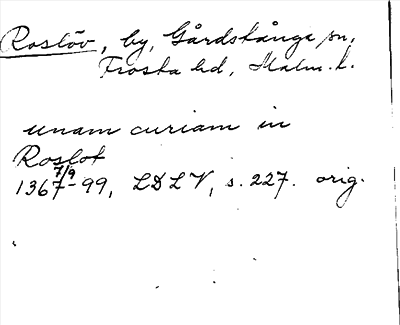 Roslöv, by, Gårdstånga sn,
Frosta hd, Malm. l.
unam curiam in
Roslof
1367 7/9 - 99, LDLV, s. 227. orig.